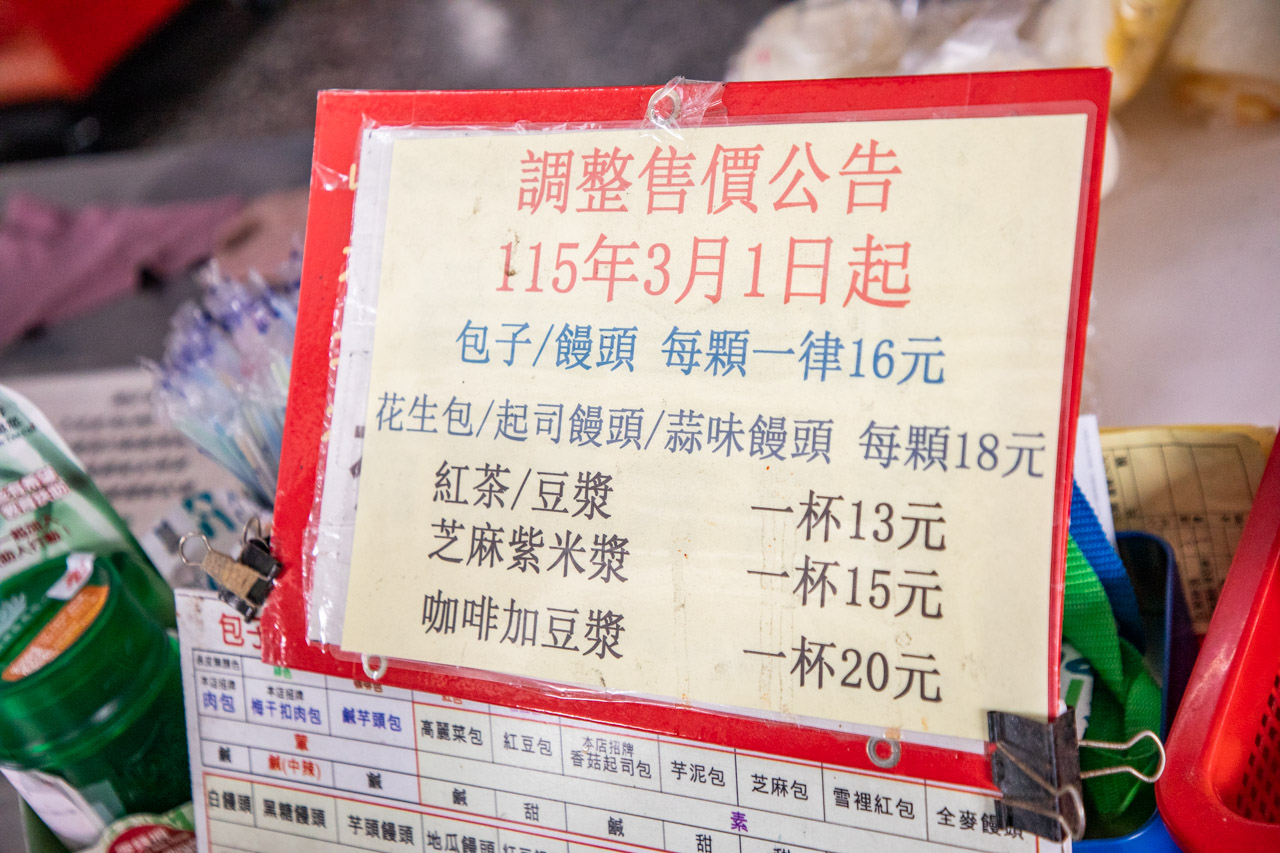 調整售價公告
115年3月1日起
包子/饅頭 每顆一律16元
花生包/起司饅頭/蒜味饅頭 每顆18元
紅茶/豆漿 一杯13元
芝麻紫米漿 一杯15元
咖啡加豆漿 一杯20元
包子
本店招牌 肉包
本店招牌 梅干扣肉包
鹹芋頭包
高麗菜包
紅豆包
本店招牌 香菇起司包
芋泥包
芝麻包
雪裡紅包
全麥饅頭
葷
鹹
鹹(中辣)
鹹
鹹
甜
鹹
素
甜
白饅頭
黑糖饅頭
芋頭饅頭
地瓜饅頭